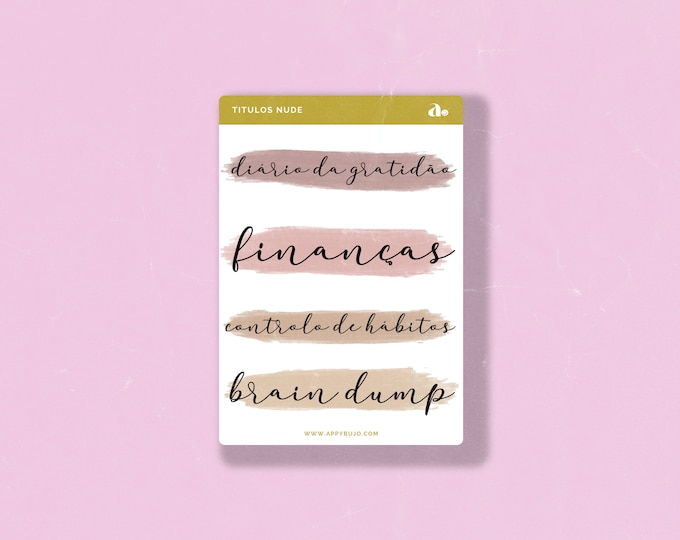 TITULOS NUDE
a.
diário da gratidão
finanças
controlo de hábitos
brain dump
WWW.APPYBUJO.COM